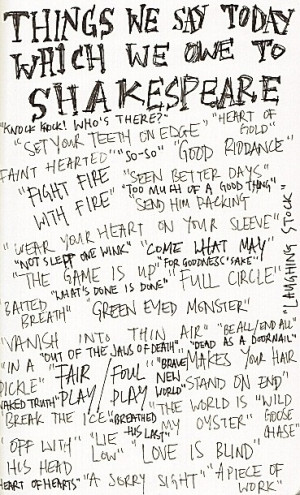 THINGS WE SAY TODAY
WHICH WE OWE TO
SHAKESPEARE
"KNOCK KNOCK! WHO'S THERE?" "HEART OF GOLD"
"SET YOUR TEETH ON EDGE"
FAINT HEARTED" "SO-SO" "GOOD RIDDANCE"
"FIGHT FIRE WITH FIRE" "SEEN BETTER DAYS"
"TOO MUCH OF A GOOD THING"
"SEND HIM PACKING"
"WEAR YOUR HEART ON YOUR SLEEVE"
"LAUGHING STOCK"
"NOT SLEPT ONE WINK" "COME WHAT MAY"
"THE GAME IS UP" "FOR GOODNESS' SAKE" "FULL CIRCLE"
"WHAT'S DONE IS DONE"
"BATED BREATH" "GREEN EYED MONSTER"
"VANISH INTO THIN AIR" "BE ALL/END ALL"
"OUT OF THE JAWS OF DEATH" "DEAD AS A DOORNAIL"
"IN A PICKLE" "FAIR PLAY/FOUL PLAY" "BRAVE NEW WORLD" "MAKES YOUR HAIR STAND ON END"
NAKED TRUTH" "THE WORLD IS MY OYSTER" "WILD GOOSE CHASE"
"BREAK THE ICE" "BREATHED HIS LAST"
"OFF WITH HIS HEAD" "LIE LOW" "LOVE IS BLIND"
HEART OF HEARTS" "A SORRY SIGHT" "A PIECE OF WORK"